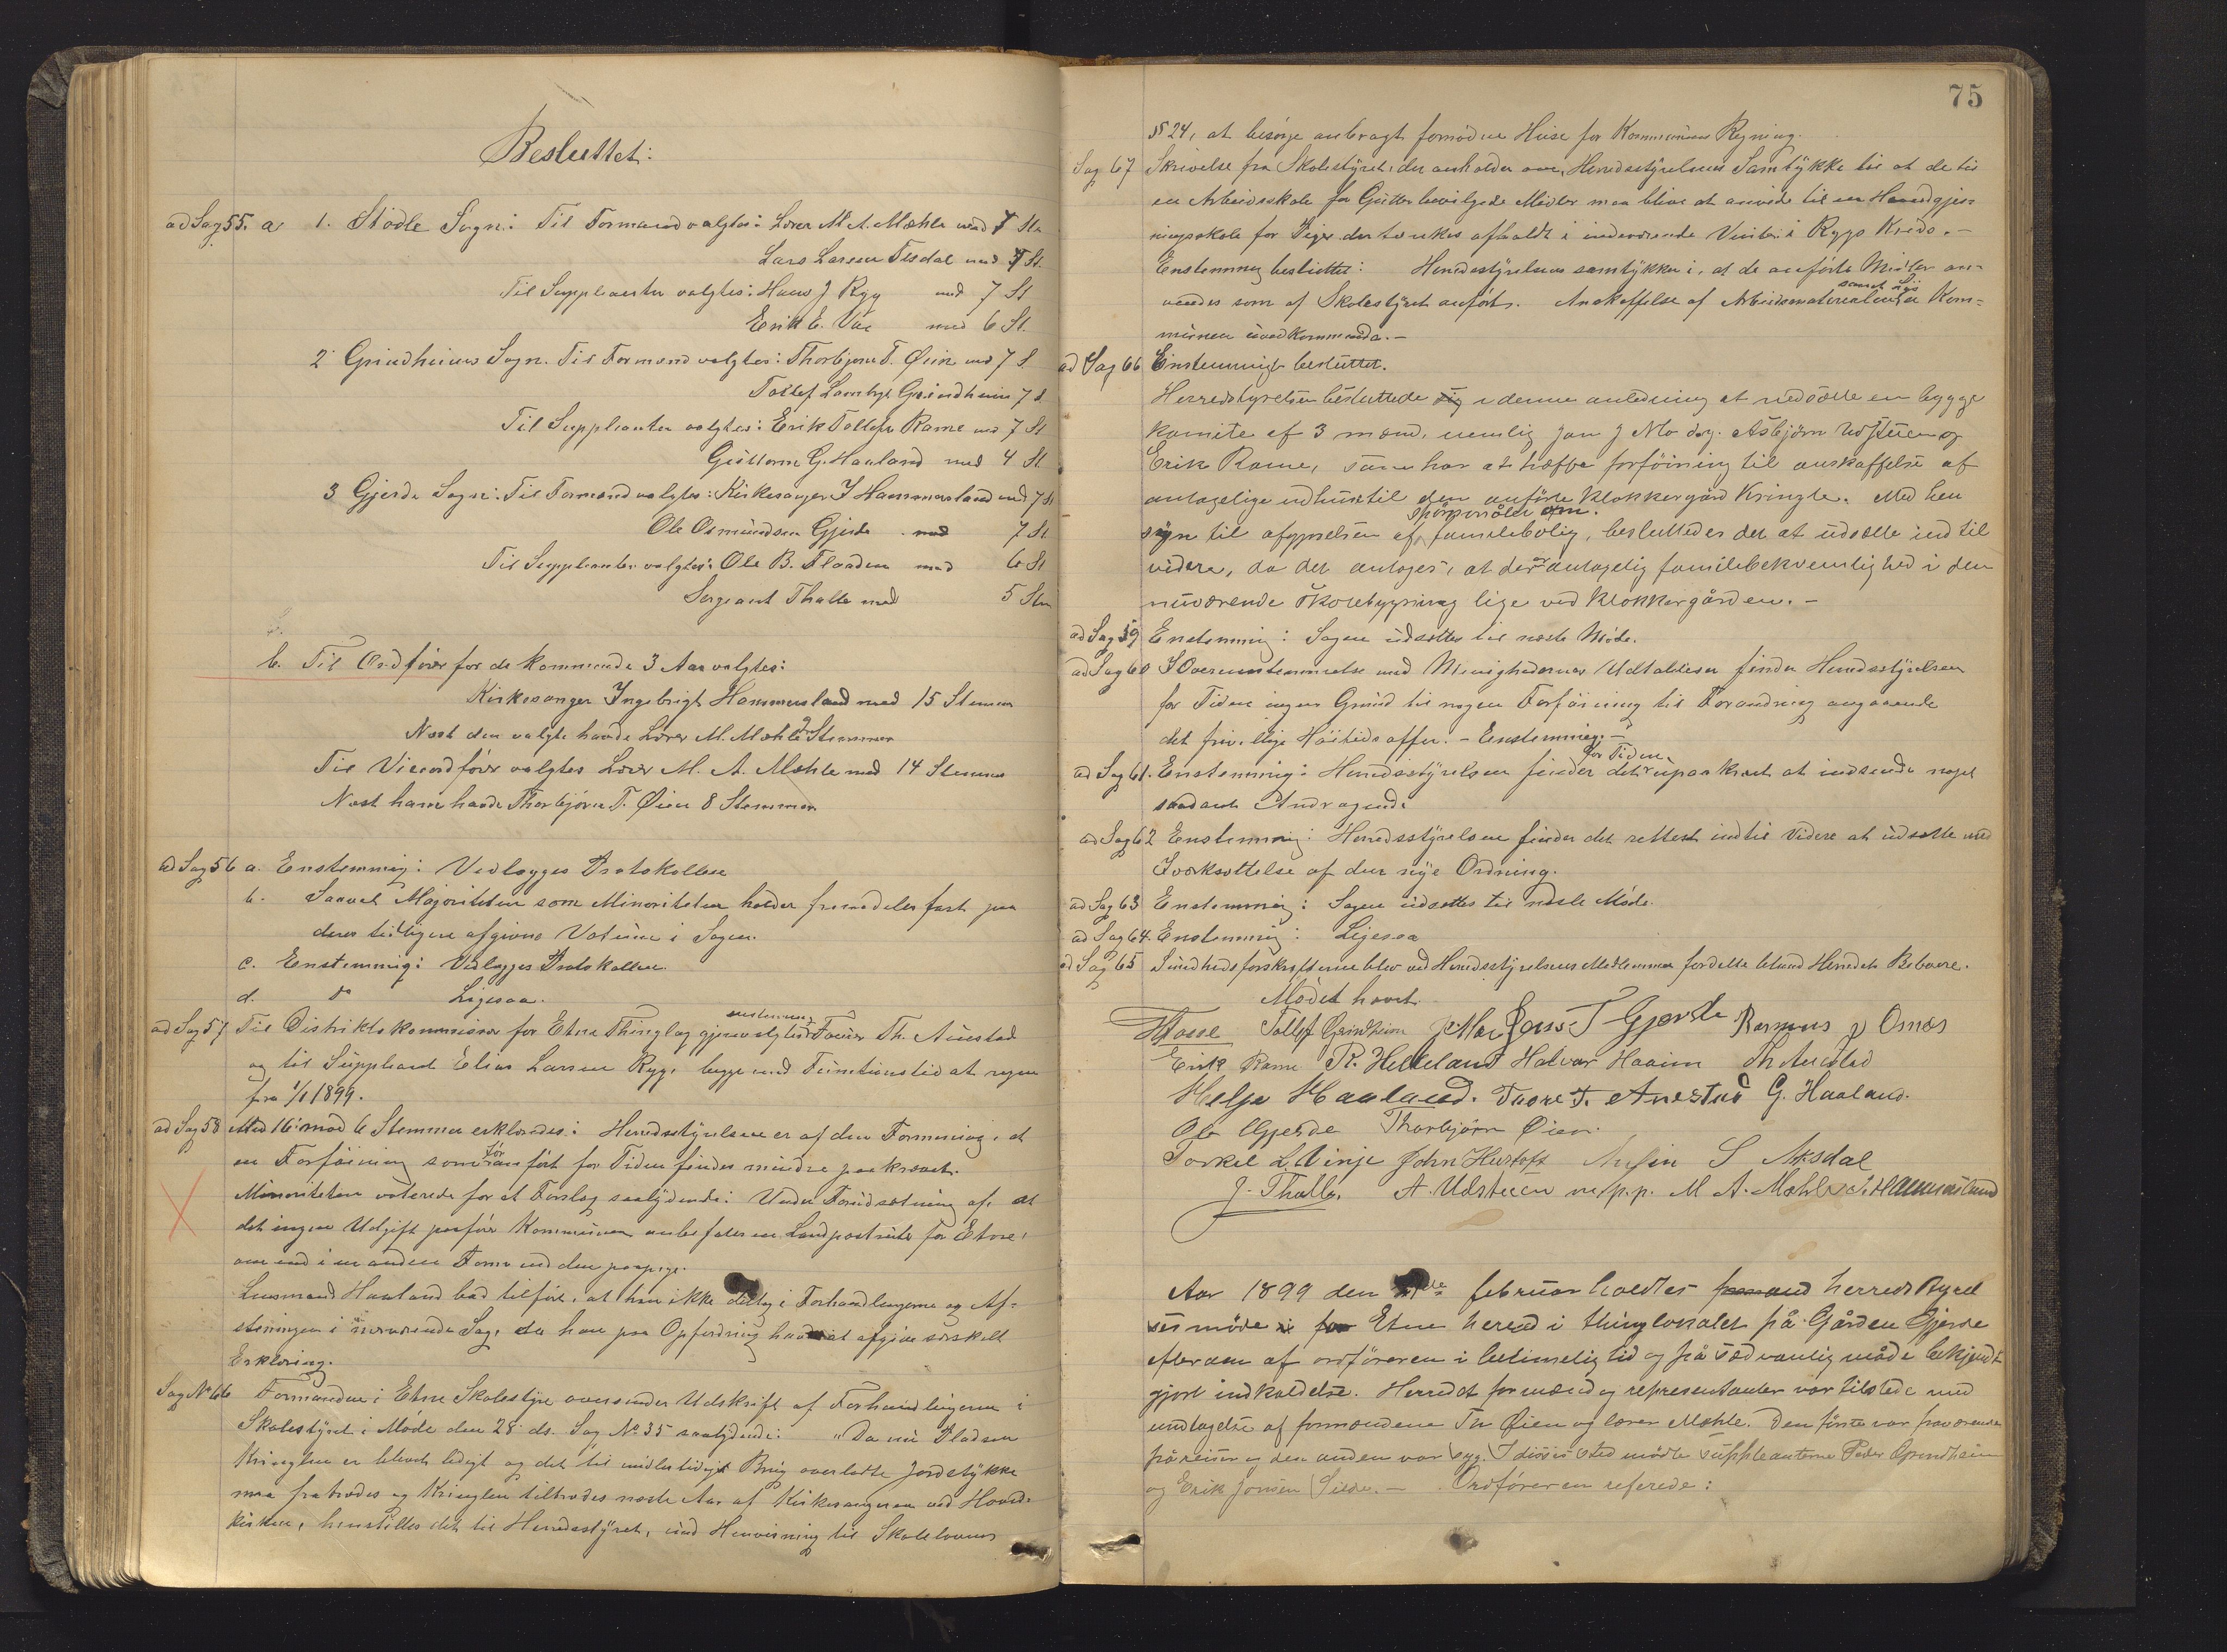 Besluttet:
ad Sag 55. a. 1. Stødle Sogn: Til Formænd valgtes: Lærer M. A. Mæhle med 7 St.
Lars Larsen Flesdal med 7 St.
Til Suppleanter valgtes: Hans J Ryg med 7 St
Erik E. Vae med 6 St.
2 Grindheims Sogn. Til Formænd valgtes: Thorbjørn T. Øien med 7 S.
Tollef Grindheim 7 S
Til Suppleanter valgtes: Erik Tollefs Rame med 7 St
Guttorm G. Haaland med 4 St
3 Gjerde Sogn: Til Formænd valgtes: Kirkesanger I Hammersland med 7 St
Ole Osmundsen Gjerde med 7 St
Til Suppleanter valgtes: Ole B. Flaaden med 6 St
Sergeant Thalle med 5 Stm
b. Til Ordfører for de kommende 3 Aar valgtes:
Kirkesanger Ingebrigt Hammersland med 15 Stemmer
Næst den valgte havde Lærer M. Mæhle 7 Stemmer
Til Viceordfører valgtes Lærer M. A. Mæhle med 14 Stemmer
Næst ham havde Thorbjørn T. Øien 8 Stemmer
ad Sag 56 a. Enstemmig: Vedlægges Protokollen
b. Saavel Majoriteten som Minoriteten holder fremdeles fast paa
deres tidligere afgivne Votum i Sagen.
c. Enstemmig: Vedlægges Protokollen.
d. do Ligesaa.
ad Sag 57 Til Distriktskommissær for Etne Thinglag gjenvalgtes enstemmig Th. Austad
og til Suppleant Elias Larsen Ryg, begge med Funktionstid at regne
fra 1/1 1899.
ad Sag 58 Med 16 mod 6 Stemmer erklæredes: Herredsstyrelsen er af den Formening, at
en Forføining som anført for Tiden findes mindre paakrævet.
Minoriteten voterede for et Forslag saalydende: Under Forudsætning af, at
det ingen Udgift paafører Kommunen anbefales en Landpostrute for Etne,
om end i en anden Form end den paapege.
Lensmand Haaland bad tilført, at han ikke deltog i Forhandlingerne og Af-
stemningen i nærværende Sag, da han paa Opfordring havde at afgive særskilt
Erklæring.
Sag No 66 Formanden i Etne Skolestyre oversender Udskrift af Forhandlingerne i
Skolestyret i Møde den 28 ds. Sag No 35 saalydende: "Da nu Pladsen
Kringlen er blevet ledigt og det til midlertidigt Brug overladte Jordstykke
maa fratrædes og Kringlen tiltrædes næste Aar af Kirkesangeren ved Hoved-
kirken, henstilles det til Herredsstyret, und Henvisning til Skolelovens
75
§§ 24, at besørge anbragt fornødne Huse for Kommunens Regning.
Sag 67 Skrivelse fra Skolestyret, der anholder om Herredsstyrelsens Samtykke til at de til
en Arbeidsskole for Gutter bevilgede Midler maa blive at anvende til en Haandgjer-
ningsskole for Piger der tænkes afholdt i indeværende Vinter i Rygs Kreds.-
Enstemmig besluttet: Herredsstyrelsen samtykker i, at de anførte Midler an-
vendes som af Skolestyret anført. Anskaffelse af Arbeidsmaterialer samt Lys er Kom-
munen uvedkommende.-
ad Sag 66 Enstemmigt besluttet.
Herredstyrelsen besluttede sig i denne anledning at nedsætte en bygge
komite af 3 mænd, nemlig Jon J Mo dog. Asbjørn Udstuen og
Erik Rame, som har at træffe forføining til anskaffelse af
antagelige udhus til den anførte Klokkergård Kringle. Med hen
syn til afgjørelsen af spørgsmålet om familebolig, besluttedes det at udsætte ind til
videre, da det antages, at der er antagelig familebekvemlighed i den
nuværende skolebygning lige ved klokkergården.-
ad Sag 59 Enstemmig: Sagen udsættes til næste Møde.
ad Sag 60 I Overensstemmelse med Menighedernes Udtalelser finder Herredsstyrelsen
for Tiden ingen Grund til nogen Forføining til Forandring angaaende
det frivillige Høitidsoffer. - Enstemmig.-
ad Sag 61. Enstemmig: Herredsstyrelsen finder det for Tiden upaakrævet at indsende noget
saadant Andragende
ad Sag 62 Enstemmig: Herredsstyrelsen finder det rettest indtil Videre at udsætte med
Iværksættelse af den nye Ordning.
ad Sag 63 Enstemmig: Sagen udsættes til næste Møde.
ad Sag 64. Enstemmig: Ligesaa
ad Sag 65 Sundhedsforskrifterne blev ved Herredsstyrelsens Medlemmer fordelte blandt Herredets Beboere.
Mødet hævet.
Tollef Grindheim J Mo T Gjerde Rasmus J Omas
Erik Rame R. Helleland Halvor Haaim Th Austad
Helge Haaland. Tore T. Anestad G. Haaland.
Ole Gjerde Thorbjørn Øien.
Torkel L. Vinje John Hustoft Anfin S Aksdal
J. Thalle. A. Udstuen m/p.p. M A. Mæhle I. Hammersland
Aar 1899 den februar holdtes formand herredstyrel
ses møde i for Etne herred i thinglokalet på Gården Gjerde
efter om af ordføreren i betimelig tid og på sædvanlig måde bekjendt
gjort indkaldelse. Herredet formænd og representanter var tilstede med
undtagelse af formændene Th Øien og lærer Mæhle. Den første var fraværende
på reiser og den anden var syg. I disses sted mødte suppleanterne Peder Grindheim
og Erik Jonsen Silde.- Ordføreren referede: